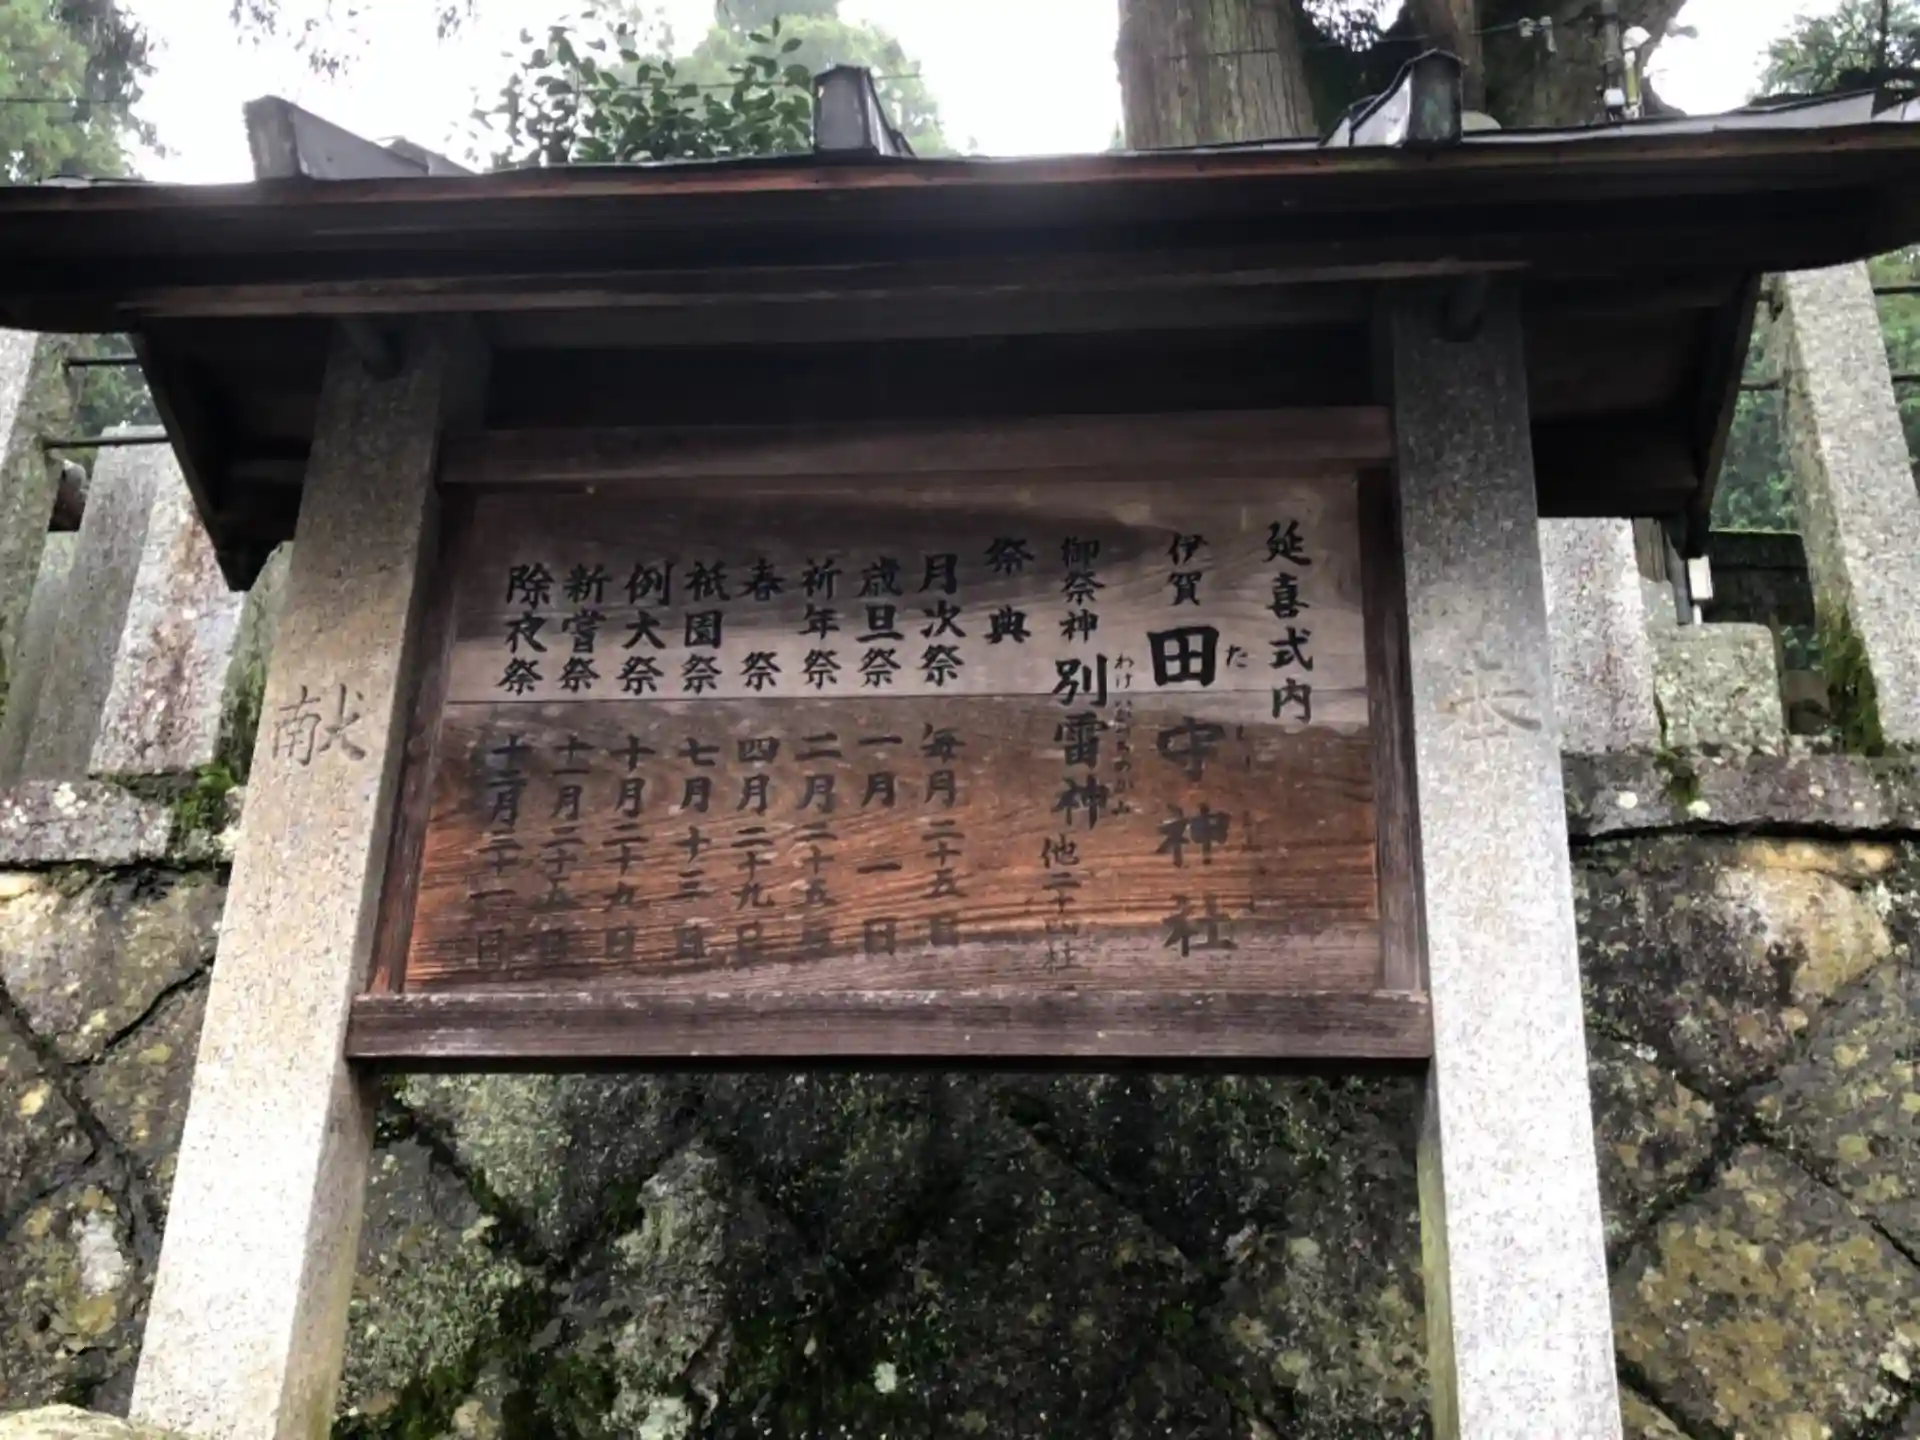 延喜式内
伊賀 田守神社
た
御祭神 別雷神 他二十四社
わけ
祭典
月次祭 毎月二十五日
歳旦祭 一月一日
祈年祭 二月二十五日
春祭 四月二十九日
祇園祭 七月十三日
例大祭 十月二十九日
新嘗祭 十一月二十五日
除夜祭 十二月三十一日
献
奉